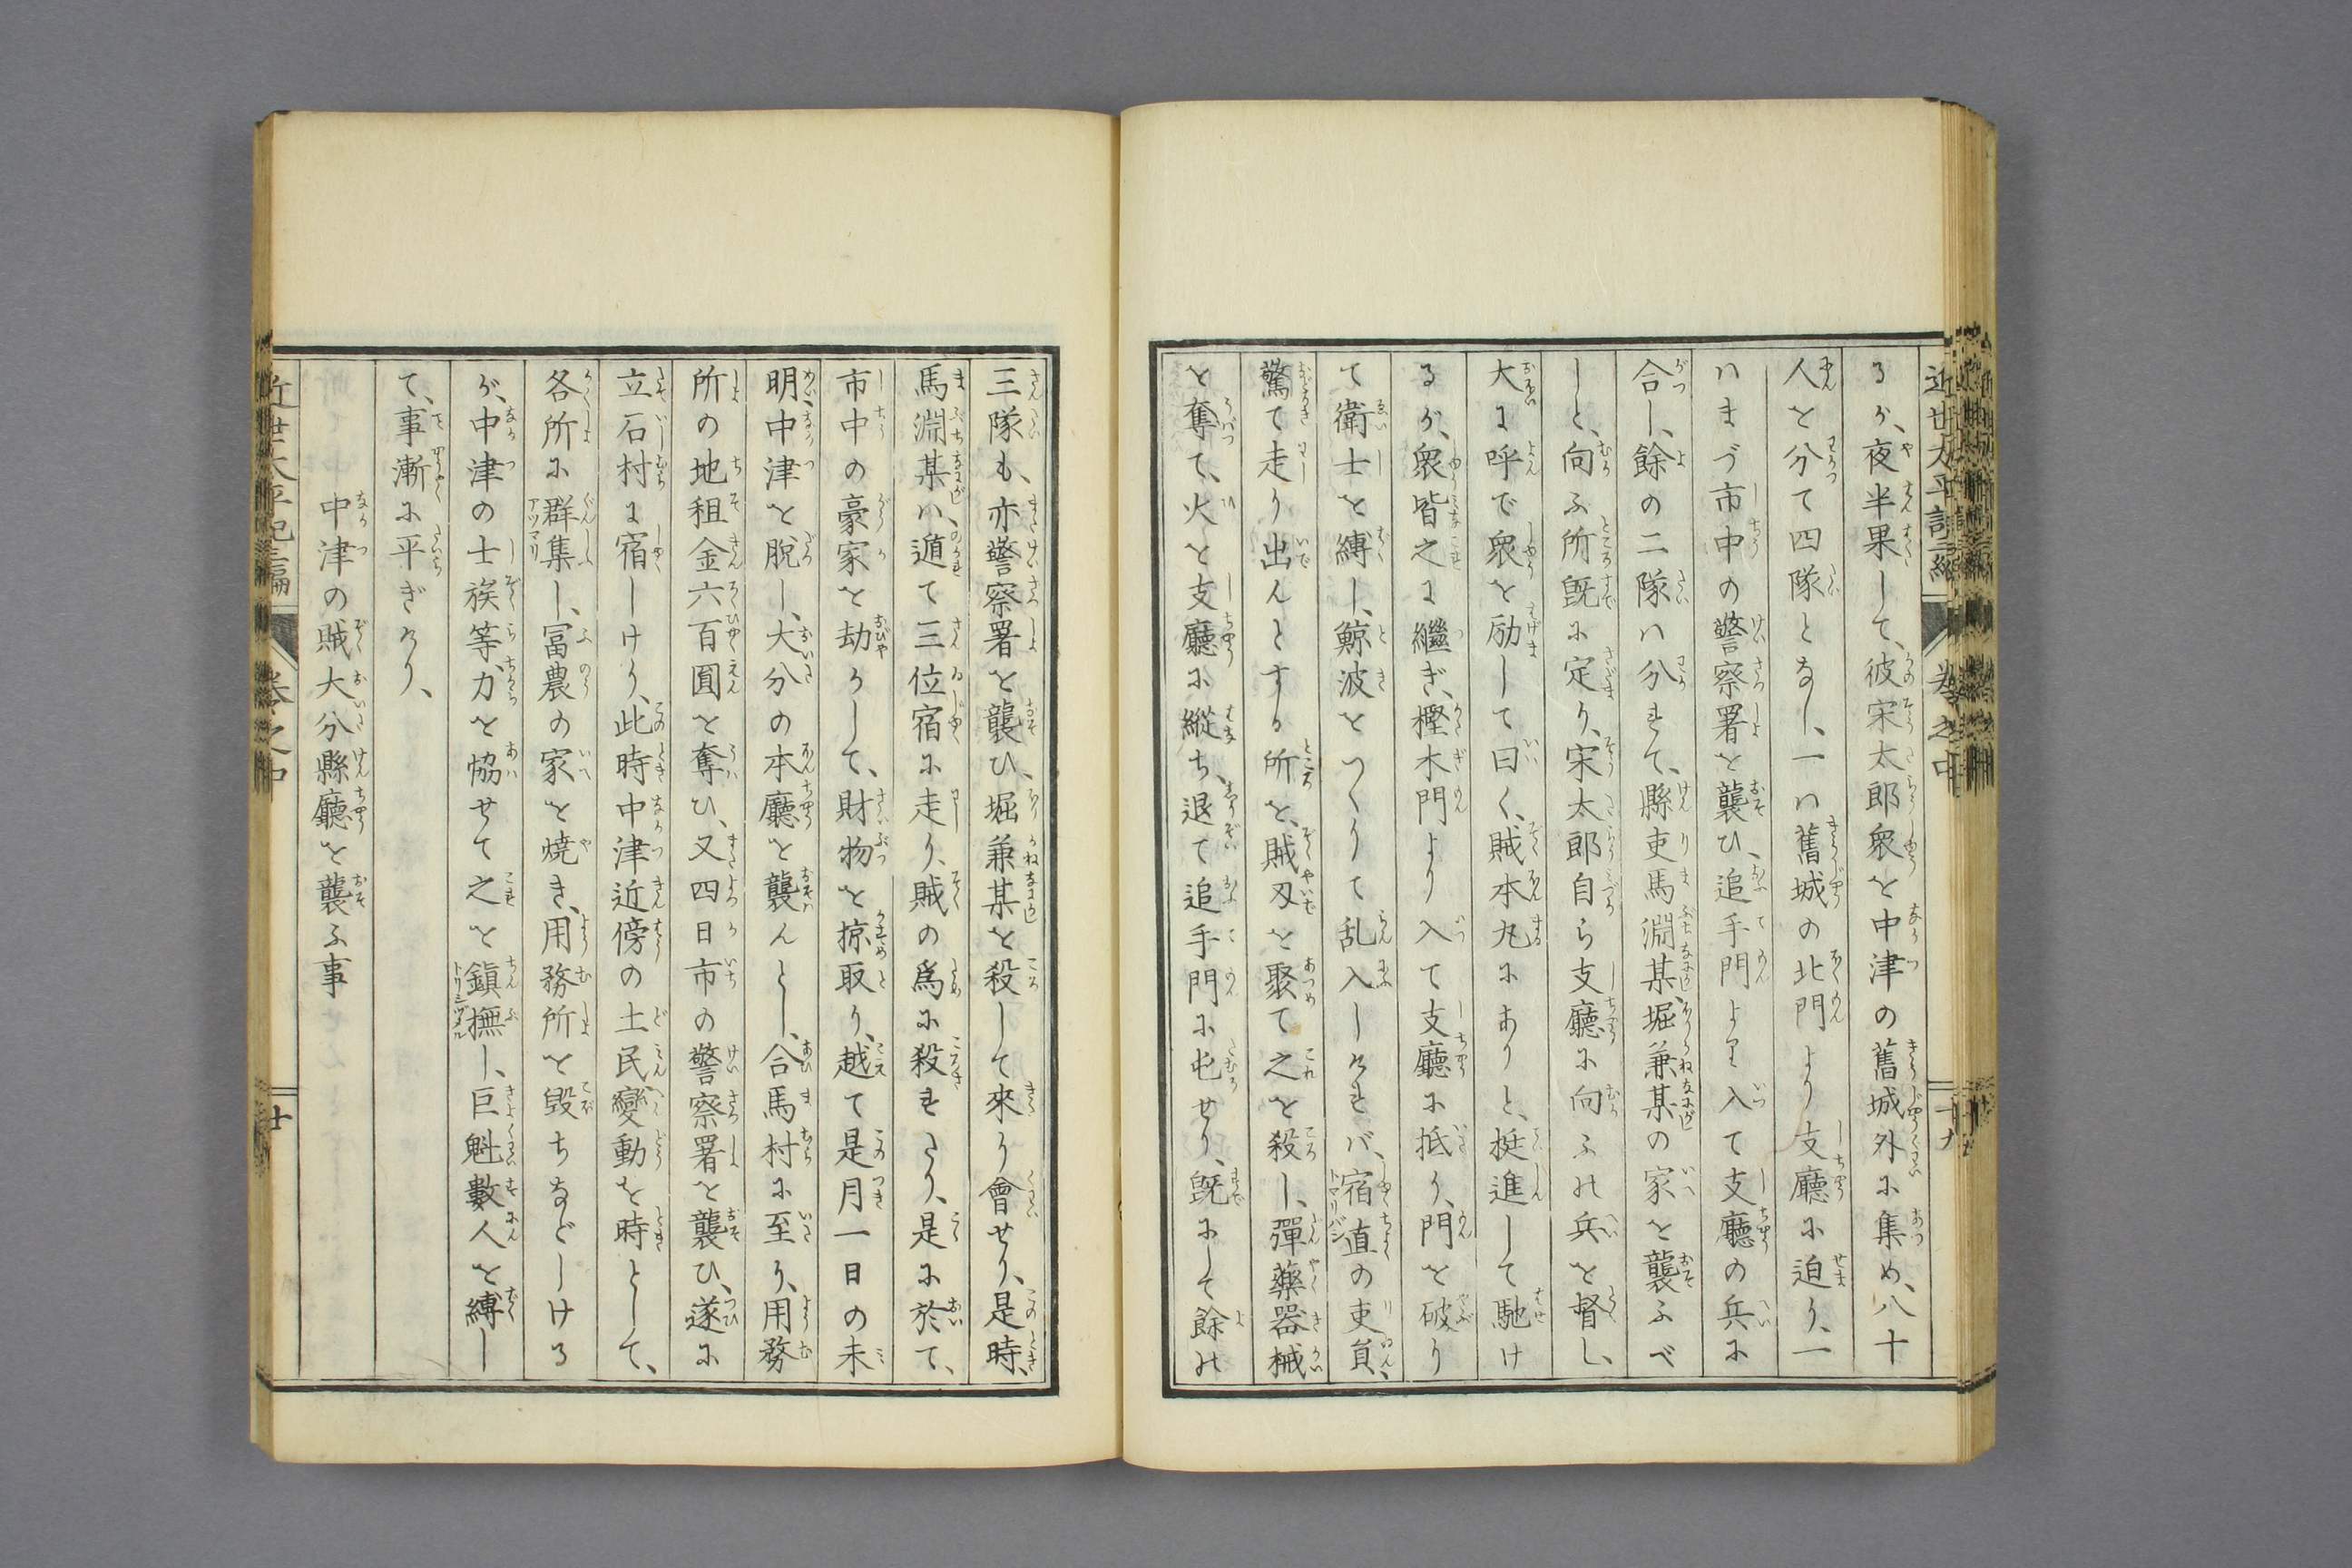 近世太平記三編 卷之中 十九
るが、夜半果して、彼宋太郎衆を中津の舊城外に集め、八十
人を分て四隊となし、一ハ舊城の北門より支廳に迫り、一
ハまづ市中の警察署を襲ひ、追手門より入て支廳の兵に
合し、餘の二隊ハ分れて、縣吏馬淵某、堀兼某の家を襲ふべ
しと、向ふ所既に定り、宋太郎自ら支廳に向ふの兵を督し、
大に呼で衆を励して曰く、賊本丸にありと、挺進して馳け
るが、衆皆之に繼ぎ、樫木門より入て支廳に抵り、門を破り
て衛士を縛し、鯨波をつくりて乱入しければ、宿直の吏員、
驚て走り出んとする所を、賊刄を聚て之を殺し、彈藥器械
を奪て、火を支廳に縱ち、退て追手門に屯せり、既にして餘の
三隊も、亦警察署を襲ひ、堀兼某を殺して來り會せり、是時、
馬淵某ハ、遁て三位宿に走り、賊の爲に殺されたり、是に於て、
市中の豪家を劫かして、財物を掠取り、越て是月一日の未
明、中津を脱し、大分の本廳を襲んとし、合馬村に至り、用務
所の地租金六百圓を奪ひ、又四日市の警察署を襲ひ、遂に
立石村に宿しけり、此時中津近傍の土民變動を時として、
各所に群集し、冨農の家を焼き、用務所を毀ちなどしける
が、中津の士族等、力を協せて之を鎭撫し、巨魁數人を縛し
て、事漸に平ぎけり、
中津の賊大分縣廳を襲ふ事
近世太平記三編 卷之中 廿